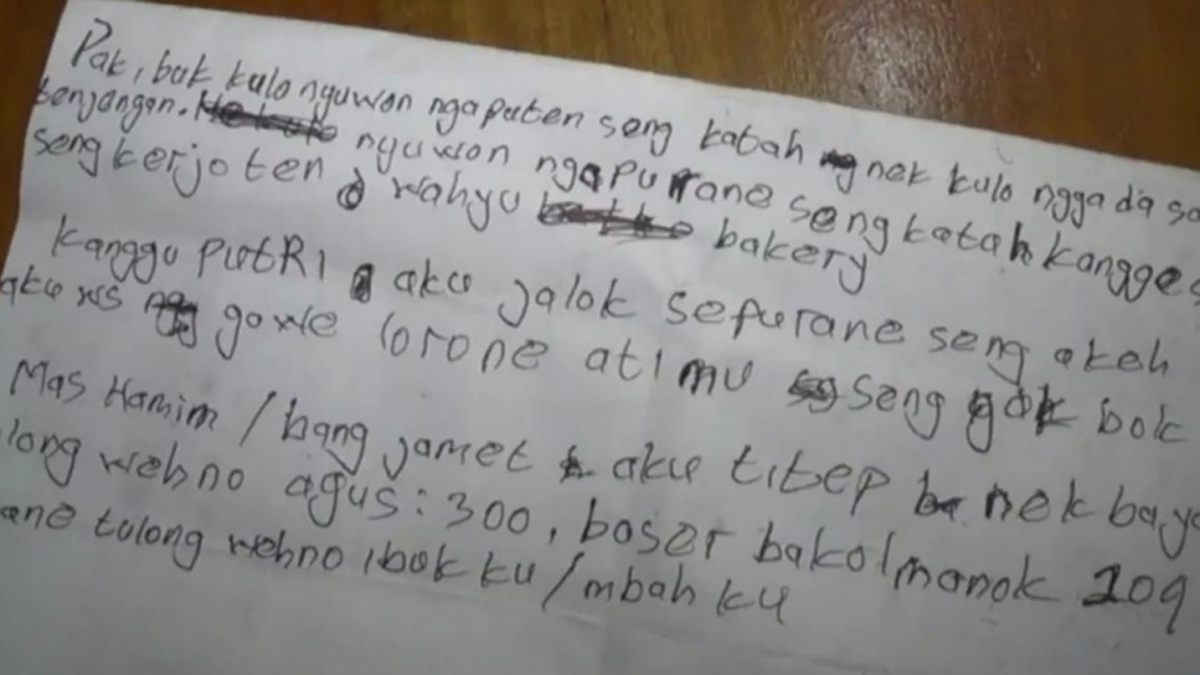 Pak, buk kulo nyuwon ngaputen seng katah nek kulo nggada sa
benjangan. nyuwon ngapurane seng katah kangge
seng kerjo ten wahyu bakery
Kanggu PutRi aku jalok sepurane seng akeh
aku ws gowe lorone atimu seng gak bok
Mas Hamim / bang jamet aku titep nek baya
long wehno agus : 300, boser bakol manok 209
ane tulong wehno ibuk ku / mbah ku